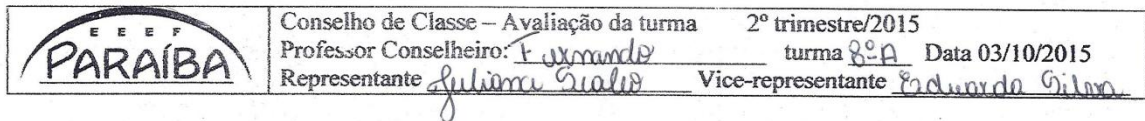 E E E F
PARAÍBA
Conselho de Classe – Avaliação da turma 2º trimestre/2015
Professor Conselheiro: Fernando turma 8ºA Data 03/10/2015
Representante Juliana Vice-representante Eduarda Silva